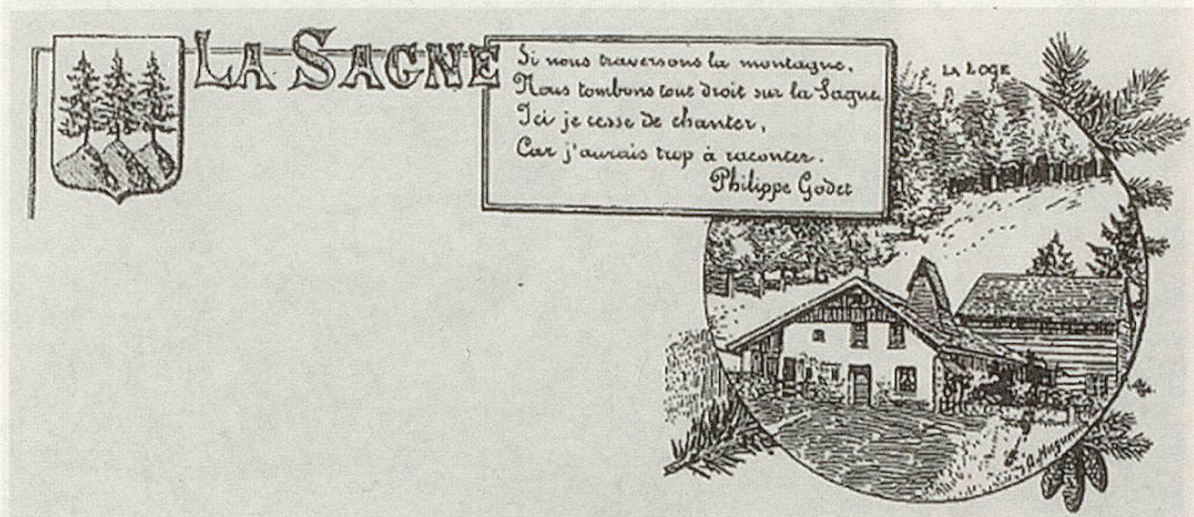 LA SAGNE
Si nous traversons la montagne,
Nous tombons tout droit sur la Sagne.
Ici je cesse de chanter,
Car j'aurais trop à raconter.
Philippe Godet
LA LOGE